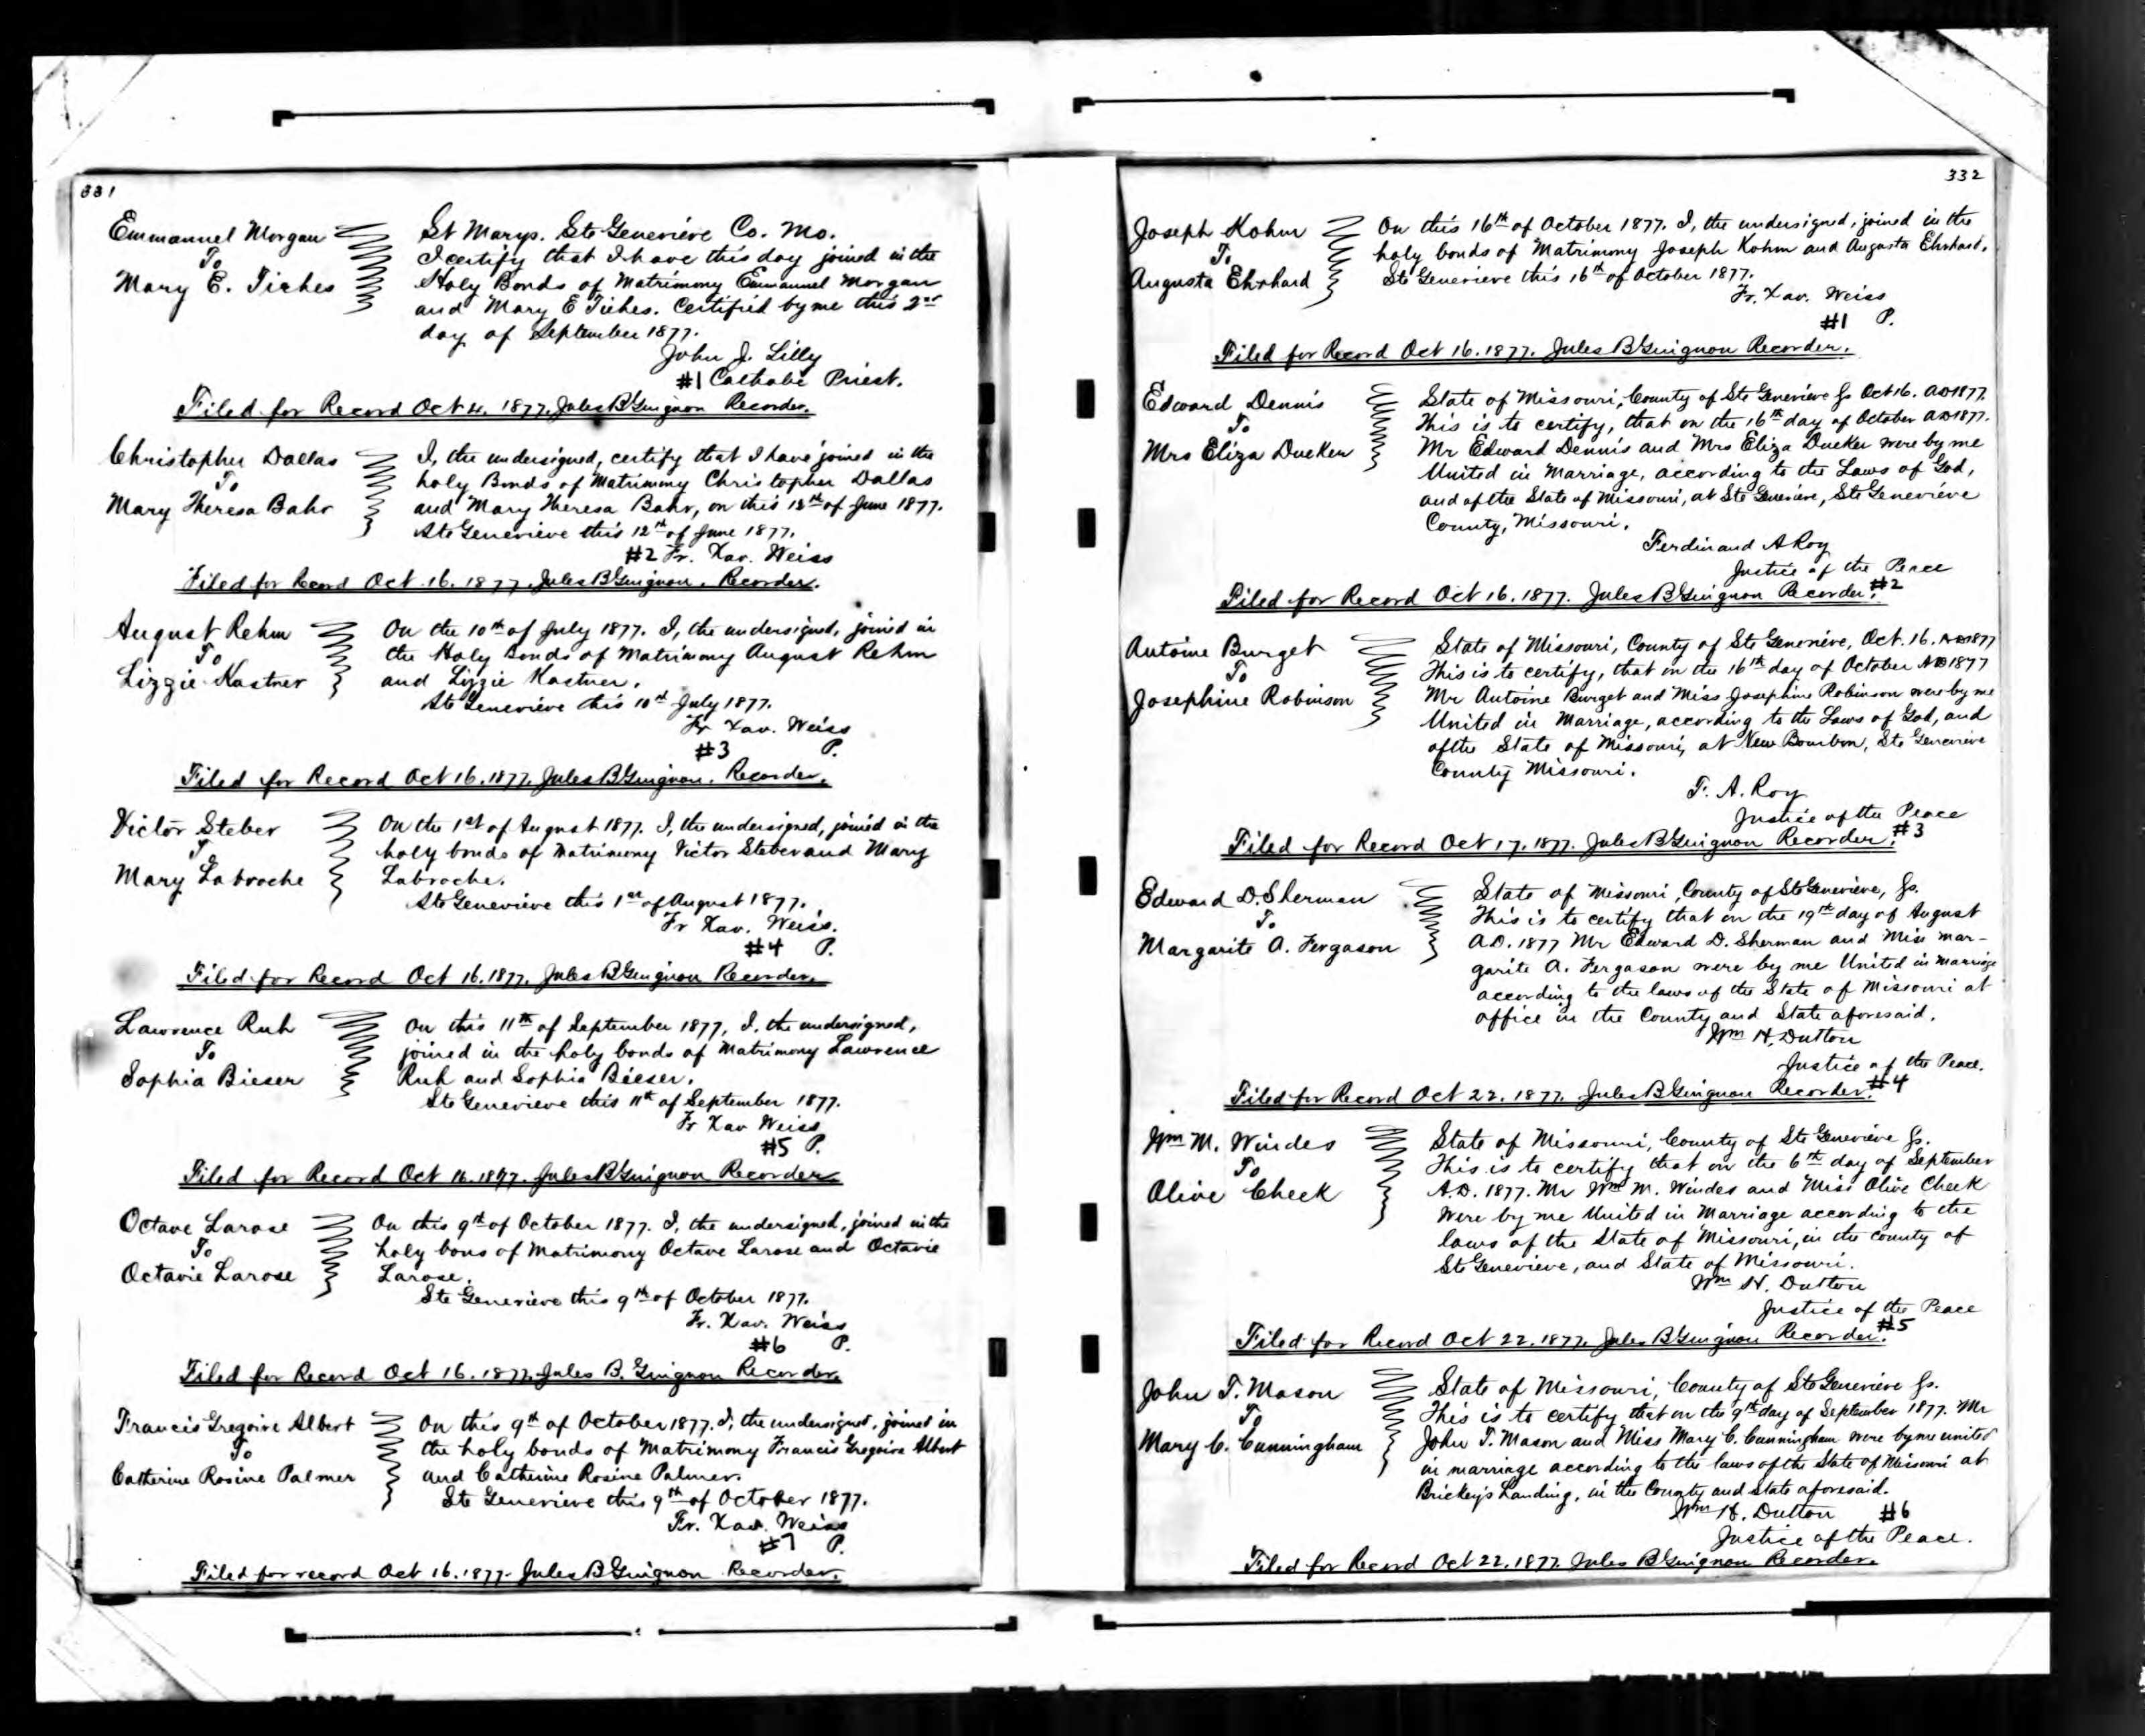 331
Emmanuel Morgan
To
Mary E. Tiches
St Marys. Ste Genevieve Co. Mo.
I certify that I have this day joined in the
Holy Bonds of Matrimony Emmanuel Morgan
and Mary E Tiches. Certified by me this 2nd
day of September 1877.
John J. Lilly
#1 Catholic Priest.
Filed for Record Oct 4. 1877. Jules B Guignon Recorder.
Christopher Dallas
To
Mary Theresa Bahr
I, the undersigned, certify that I have joined in the
holy Bonds of Matrimony Christopher Dallas
and Mary Theresa Bahr, on this 12th of June 1877.
Ste Genevieve this 12th of June 1877.
#2 Fr. Xav. Weiss
Filed for Record Oct. 16. 1877. Jules B Guignon. Recorder.
August Rehm
To
Lizzie Kastner
On the 10th of July 1877. I, the undersigned, joined in
the Holy Bonds of Matrimony August Rehm
and Lizzie Kastner.
Ste Genevieve this 10th July 1877.
Fr Xav. Weiss
#3 P.
Filed for Record Oct 16. 1877. Jules B Guignon. Recorder.
Victor Steber
To
Mary Labroche
On the 1st of August 1877. I, the undersigned, joined in the
holy bonds of Matrimony Victor Steber and Mary
Labroche.
Ste Genevieve this 1st of August 1877.
Fr Xav. Weiss.
#4 P.
Filed for Record Oct 16. 1877. Jules B Guignon Recorder.
Lawrence Ruh
To
Sophia Bieser
On this 11th of September 1877, I, the undersigned,
joined in the holy bonds of Matrimony Lawrence
Ruh and Sophia Bieser.
Ste Genevieve this 11th of September 1877.
Fr Xav Weiss
#5 P.
Filed for Record Oct 16. 1877. Jules B Guignon Recorder
Octave Larose
To
Octavie Larose
On this 9th of October 1877. I, the undersigned, joined in the
holy bons of Matrimony Octave Larose and Octavie
Larose.
Ste Genevieve this 9th of October 1877.
Fr. Xav. Weiss
#6 P.
Filed for Record Oct 16. 1877. Jules B. Guignon Recorder.
Francis Gregoire Albert
To
Catherine Rosine Palmer
On this 9th of October 1877. I, the undersigned, joined in
the holy bonds of Matrimony Francis Gregoire Albert
and Catherine Rosine Palmer.
Ste Genevieve this 9th of October 1877.
Fr. Xav. Weiss
#7 P.
Filed for record Oct 16. 1877. Jules B Guignon Recorder.
332
Joseph Kohm
To
Augusta Ehrhard
On this 16th of October 1877. I, the undersigned, joined in the
holy bonds of Matrimony Joseph Kohm and Augusta Ehrhard.
Ste Genevieve this 16th of October 1877.
Fr. Xav. Weiss
#1 P.
Filed for Record Oct 16. 1877. Jules B Guignon Recorder.
Edward Dennis
To
Mrs Eliza Ducker
State of Missouri, County of Ste Genevieve Ss Oct 16. AD 1877.
This is to certify, that on the 16th day of October AD 1877.
Mr Edward Dennis and Mrs Eliza Ducker were by me
United in Marriage, according to the Laws of God,
and of the State of Missouri, at Ste Genevieve, Ste Genevieve
County, Missouri.
Ferdinand A Roy
Justice of the Peace
Filed for Record Oct 16. 1877. Jules B Guignon Recorder. #2
Antoine Burget
To
Josephine Robinson
State of Missouri, County of Ste Genevieve, Oct. 16. AD 1877
This is to certify, that on the 16th day of October AD 1877
Mr Antoine Burget and Miss Josephine Robinson were by me
United in Marriage, according to the Laws of God, and
of the State of Missouri, at New Bourbon, Ste Genevieve
County Missouri.
F. A. Roy
Justice of the Peace
Filed for Record Oct 17. 1877. Jules B Guignon Recorder. #3
Edward D. Sherman
To
Margarite A. Fergason
State of Missouri, County of Ste Genevieve, Ss.
This is to certify that on the 19th day of August
A.D. 1877 Mr Edward D. Sherman and Miss Mar-
garite A. Fergason were by me United in Marriage
according to the laws of the State of Missouri at
office in the County and State aforesaid.
Wm H. Dutton
Justice of the Peace.
Filed for Record Oct 22. 1877. Jules B Guignon Recorder. #4
Wm M. Windes
To
Olive Cheek
State of Missouri, County of Ste Genevieve Ss.
This is to certify that on the 6th day of September
A.D. 1877. Mr Wm M. Windes and Miss Olive Cheek
Were by me United in Marriage according to the
laws of the State of Missouri, in the County of
Ste Genevieve, and State of Missouri.
Wm H. Dutton
Justice of the Peace
Filed for Record Oct 22. 1877. Jules B Guignon Recorder. #5
John T. Mason
To
Mary C. Cunningham
State of Missouri, County of Ste Genevieve Ss.
This is to certify that on the 9th day of September 1877. Mr
John T. Mason and Miss Mary C. Cunningham were by me united
in marriage according to the laws of the State of Missouri at
Brickey's Landing, in the County and State aforesaid.
Wm H. Dutton #6
Justice of the Peace.
Filed for Record Oct 22. 1877. Jules B Guignon Recorder.